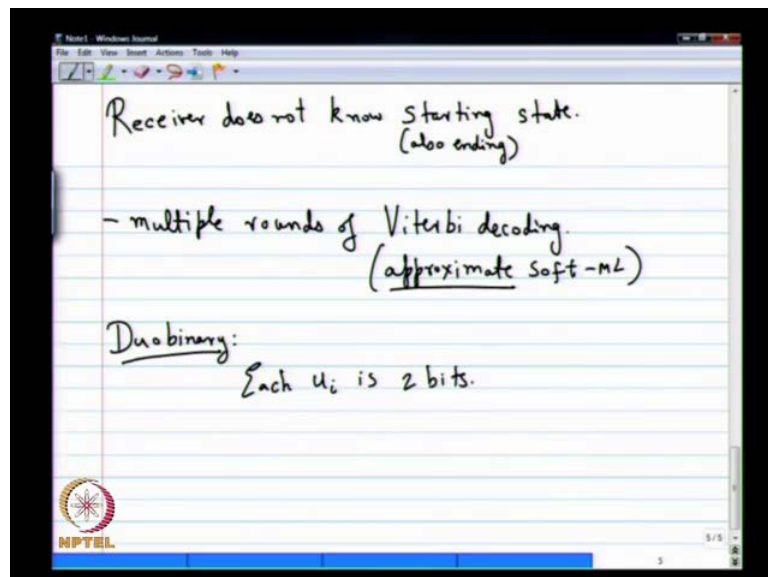 Note1 - Windows Journal
File Edit View Insert Actions Tools Help
Receiver does not know starting state.
(also ending)
- multiple rounds of Viterbi decoding.
(approximate soft-ML)
Duobinary:
Each ui is 2 bits.
NPTEL
5/5
5